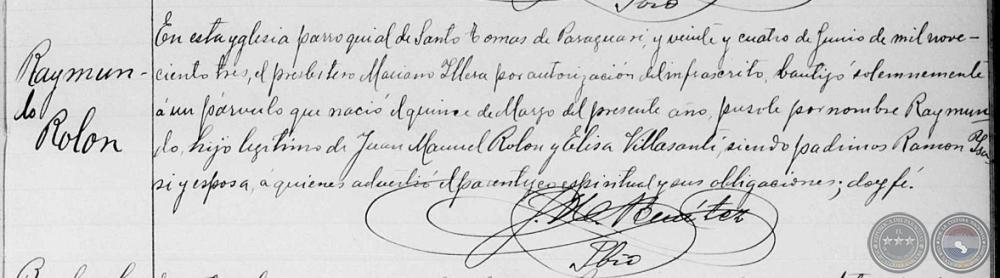 Pbro
Raymun-
do
Rolon
En esta yglesia parroquial de Santo Tomas de Paraguari, y veinte y cuatro de Junio de mil nove-
ciento tres, el presbitero Mariano Illera por autorización del infrascrito, bautizó solemnemente
á un párvulo que nació el quince de Marzo del presente año, pusole por nombre Raymun
do, hijo legitimo de Juan Manuel Rolon y Elisa Villasanti, siendo padrinos Ramon
si y esposa, á quienes advertió el parentesco espiritual y sus obligaciones; doy fé.
Benitez
Pbro